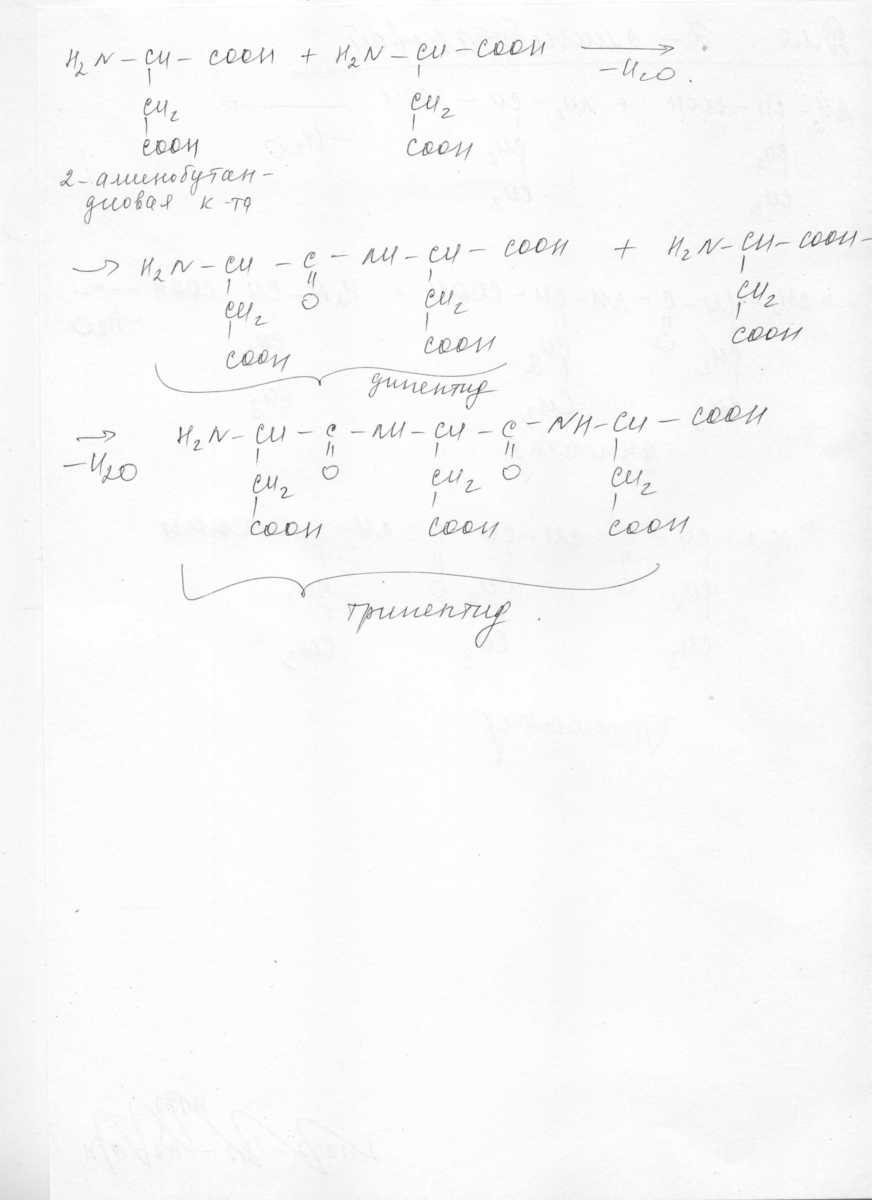 H₂N – CH – COOH + H₂N – CH – COOH ⟶
–H₂O.
CH₂ CH₂
COOH COOH
2-аминобутан-
диовая к-та
→ H₂N – CH – C – NH – CH – COOH + H₂N – CH – COOH –
CH₂ O CH₂ CH₂
COOH COOH COOH
дипептид
→ H₂N – CH – C – NH – CH – C – NH – CH – COOH
–H₂O
CH₂ O CH₂ O CH₂
COOH COOH COOH
трипептид.